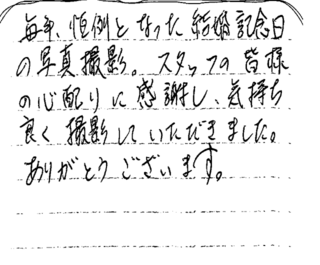 毎年、恒例となった結婚記念日
の写真撮影。スタッフの皆様
の心配りに感謝し、気持ち
良く撮影していただきました。
ありがとうございます。